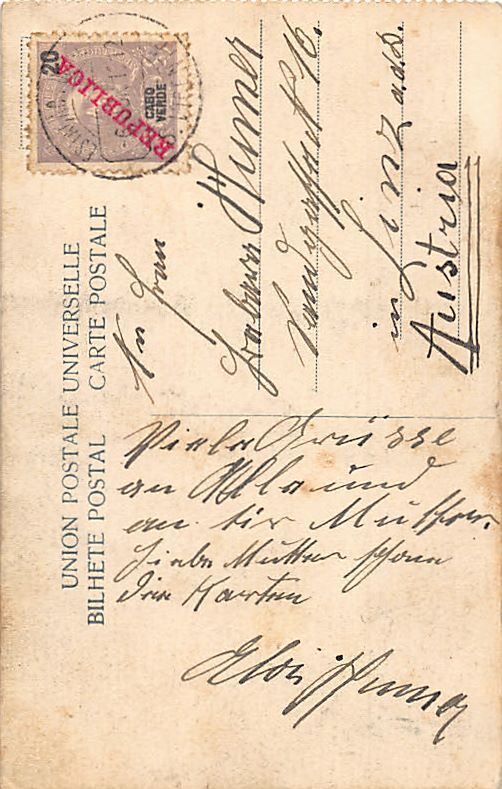 UNION POSTALE UNIVERSELLE
BILHETE POSTAL CARTE POSTALE
20
CABO
VERDE
REPUBLICA
An Frau
Barbara Humer
Landgasthof 16.
in Linz a.d.D.
Austria
Viele Grüsse
an Alle und
an dir Mutter.
Liebe Mutter schone
die Karten
Alois Humer